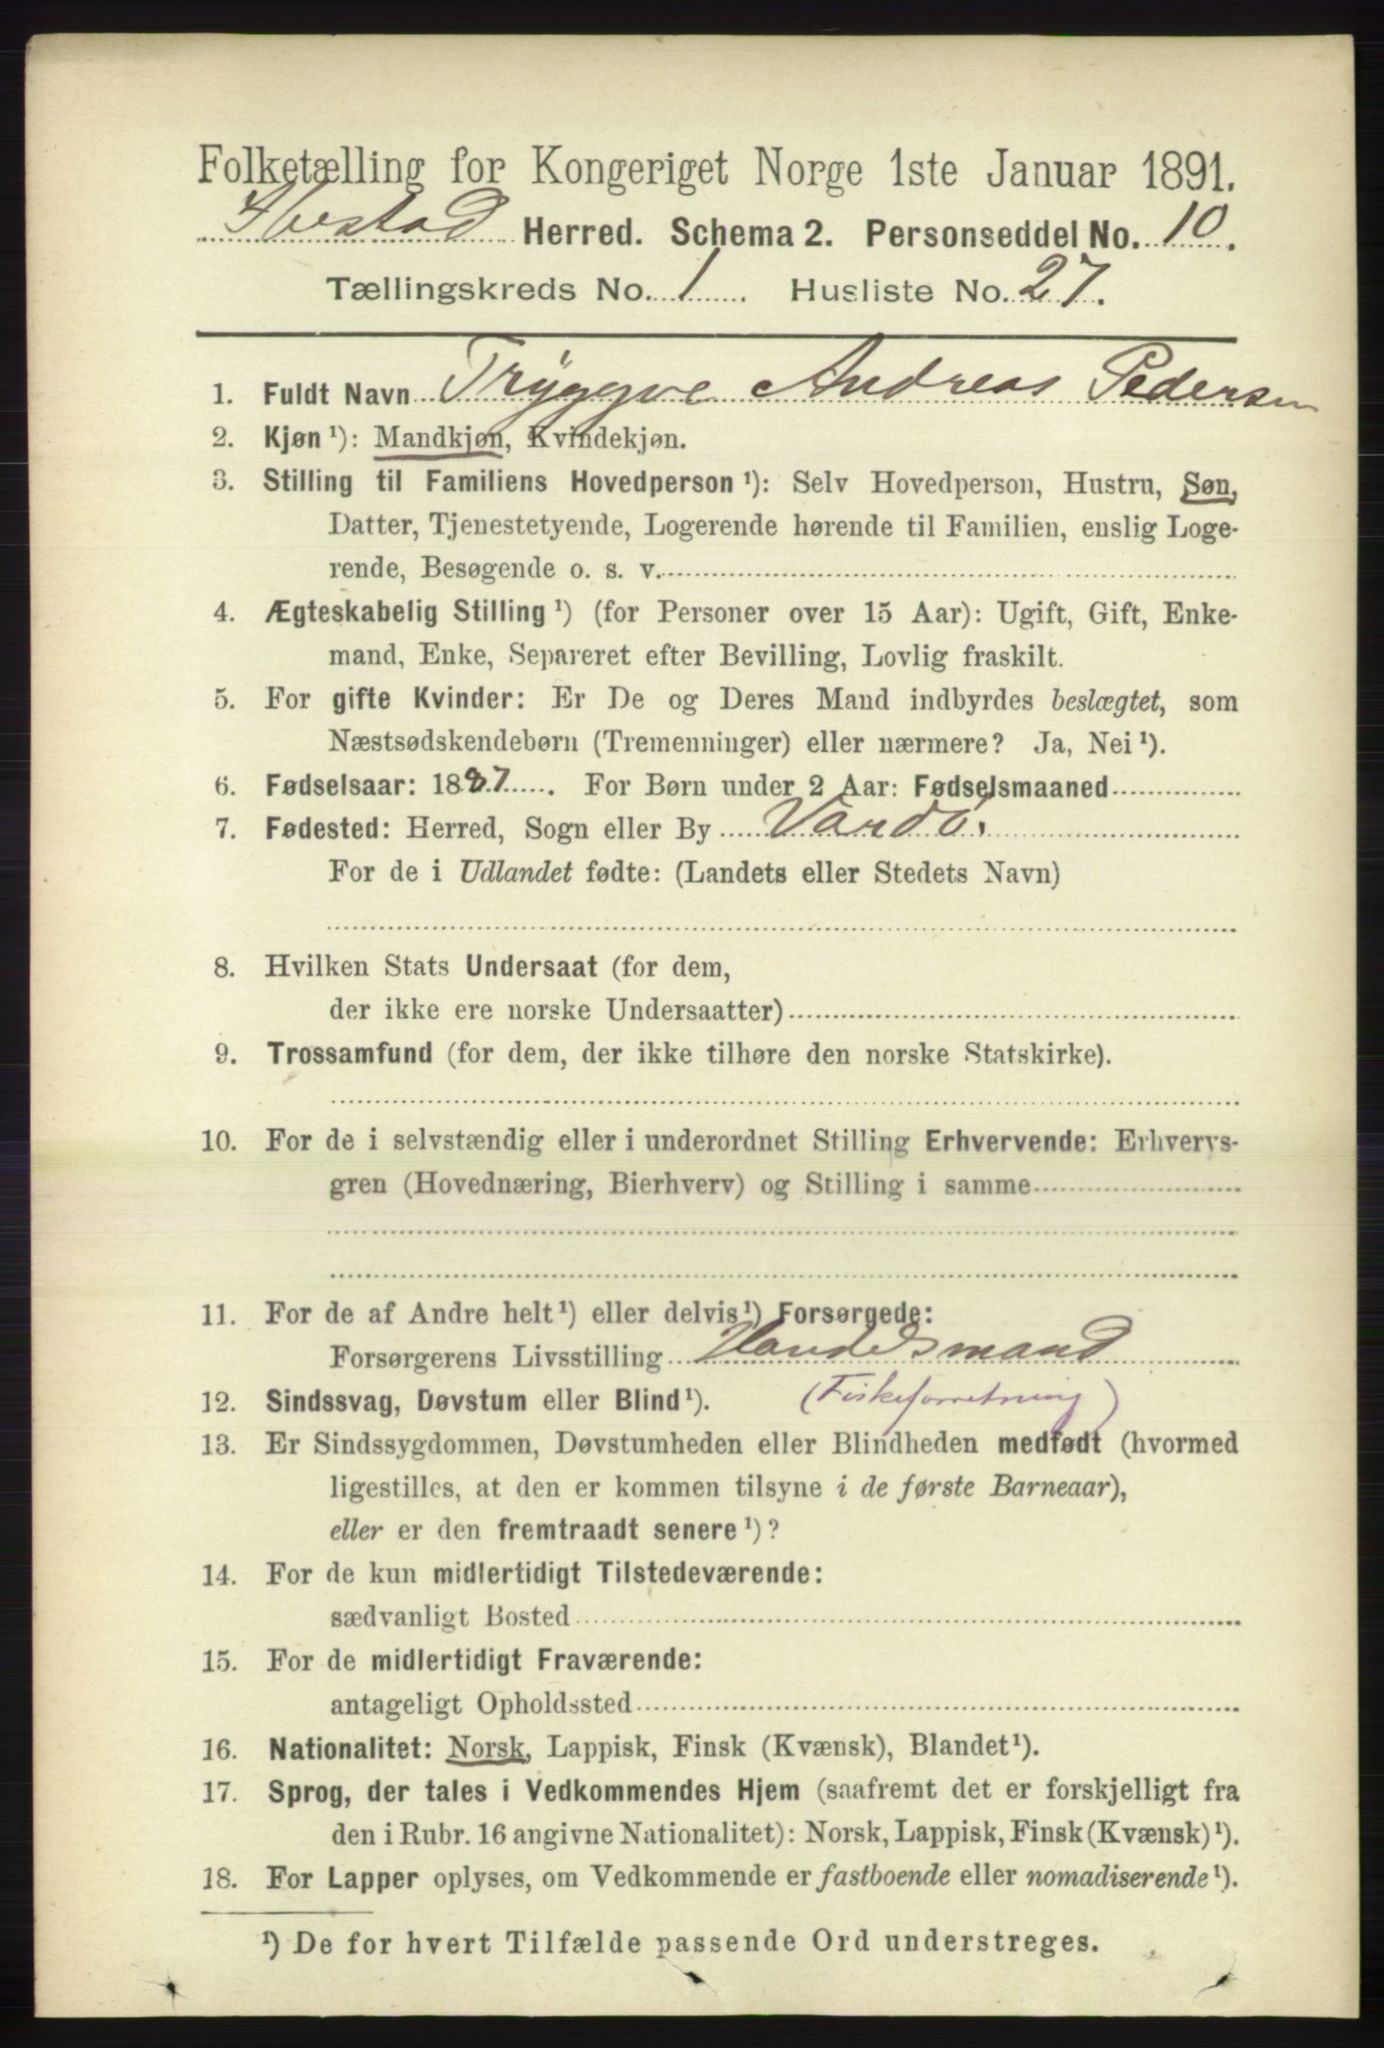 Folketælling for Kongeriget Norge 1ste Januar 1891.
Ibestad Herred. Schema 2. Personseddel No. 10.
Tællingskreds No. 1. Husliste No. 27.
1. Fuldt Navn Tryggve Andreas Pedersen
2. Kjøn ¹): Mandkjøn, Kvindekjøn.
3. Stilling til Familiens Hovedperson ¹): Selv Hovedperson, Hustru, Søn,
Datter, Tjenestetyende, Logerende hørende til Familien, enslig Loge-
rende, Besøgende o. s. v.
4. Ægteskabelig Stilling ¹) (for Personer over 15 Aar): Ugift, Gift, Enke-
mand, Enke, Separeret efter Bevilling, Lovlig fraskilt.
5. For gifte Kvinder: Er De og Deres Mand indbyrdes beslægtet, som
Næstsødskendebørn (Tremenninger) eller nærmere? Ja, Nei ¹).
6. Fødselsaar: 1887. For Børn under 2 Aar: Fødselsmaaned
7. Fødested: Herred, Sogn eller By Vardø.
For de i Udlandet fødte: (Landets eller Stedets Navn)
8. Hvilken Stats Undersaat (for dem,
der ikke ere norske Undersaatter)
9. Trossamfund (for dem, der ikke tilhøre den norske Statskirke).
10. For de i selvstændig eller i underordnet Stilling Erhvervende: Erhvervs-
gren (Hovednæring, Bierhverv) og Stilling i samme
11. For de af Andre helt ¹) eller delvis ¹) Forsørgede:
Forsørgerens Livsstilling Handelsmand
12. Sindssvag, Døvstum eller Blind ¹). (Fiskeforretning)
13. Er Sindssygdommen, Døvstumheden eller Blindheden medfødt (hvormed
ligestilles, at den er kommen tilsyne i de første Barneaar),
eller er den fremtraadt senere ¹)?
14. For de kun midlertidigt Tilstedeværende:
sædvanligt Bosted
15. For de midlertidigt Fraværende:
antageligt Opholdssted
16. Nationalitet: Norsk, Lappisk, Finsk (Kvænsk), Blandet ¹).
17. Sprog, der tales i Vedkommendes Hjem (saafremt det er forskjelligt fra
den i Rubr. 16 angivne Nationalitet): Norsk, Lappisk, Finsk (Kvænsk) ¹).
18. For Lapper oplyses, om Vedkommende er fastboende eller nomadiserende ¹).
¹) De for hvert Tilfælde passende Ord understreges.